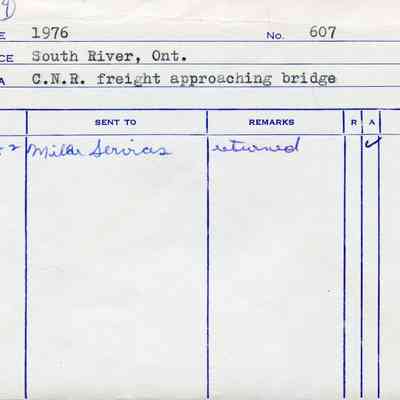 E 1976 No. 607
CE South River, Ont.
A C.N.R. freight approaching bridge
SENT TO REMARKS R A
2 Miller Services returned ✓